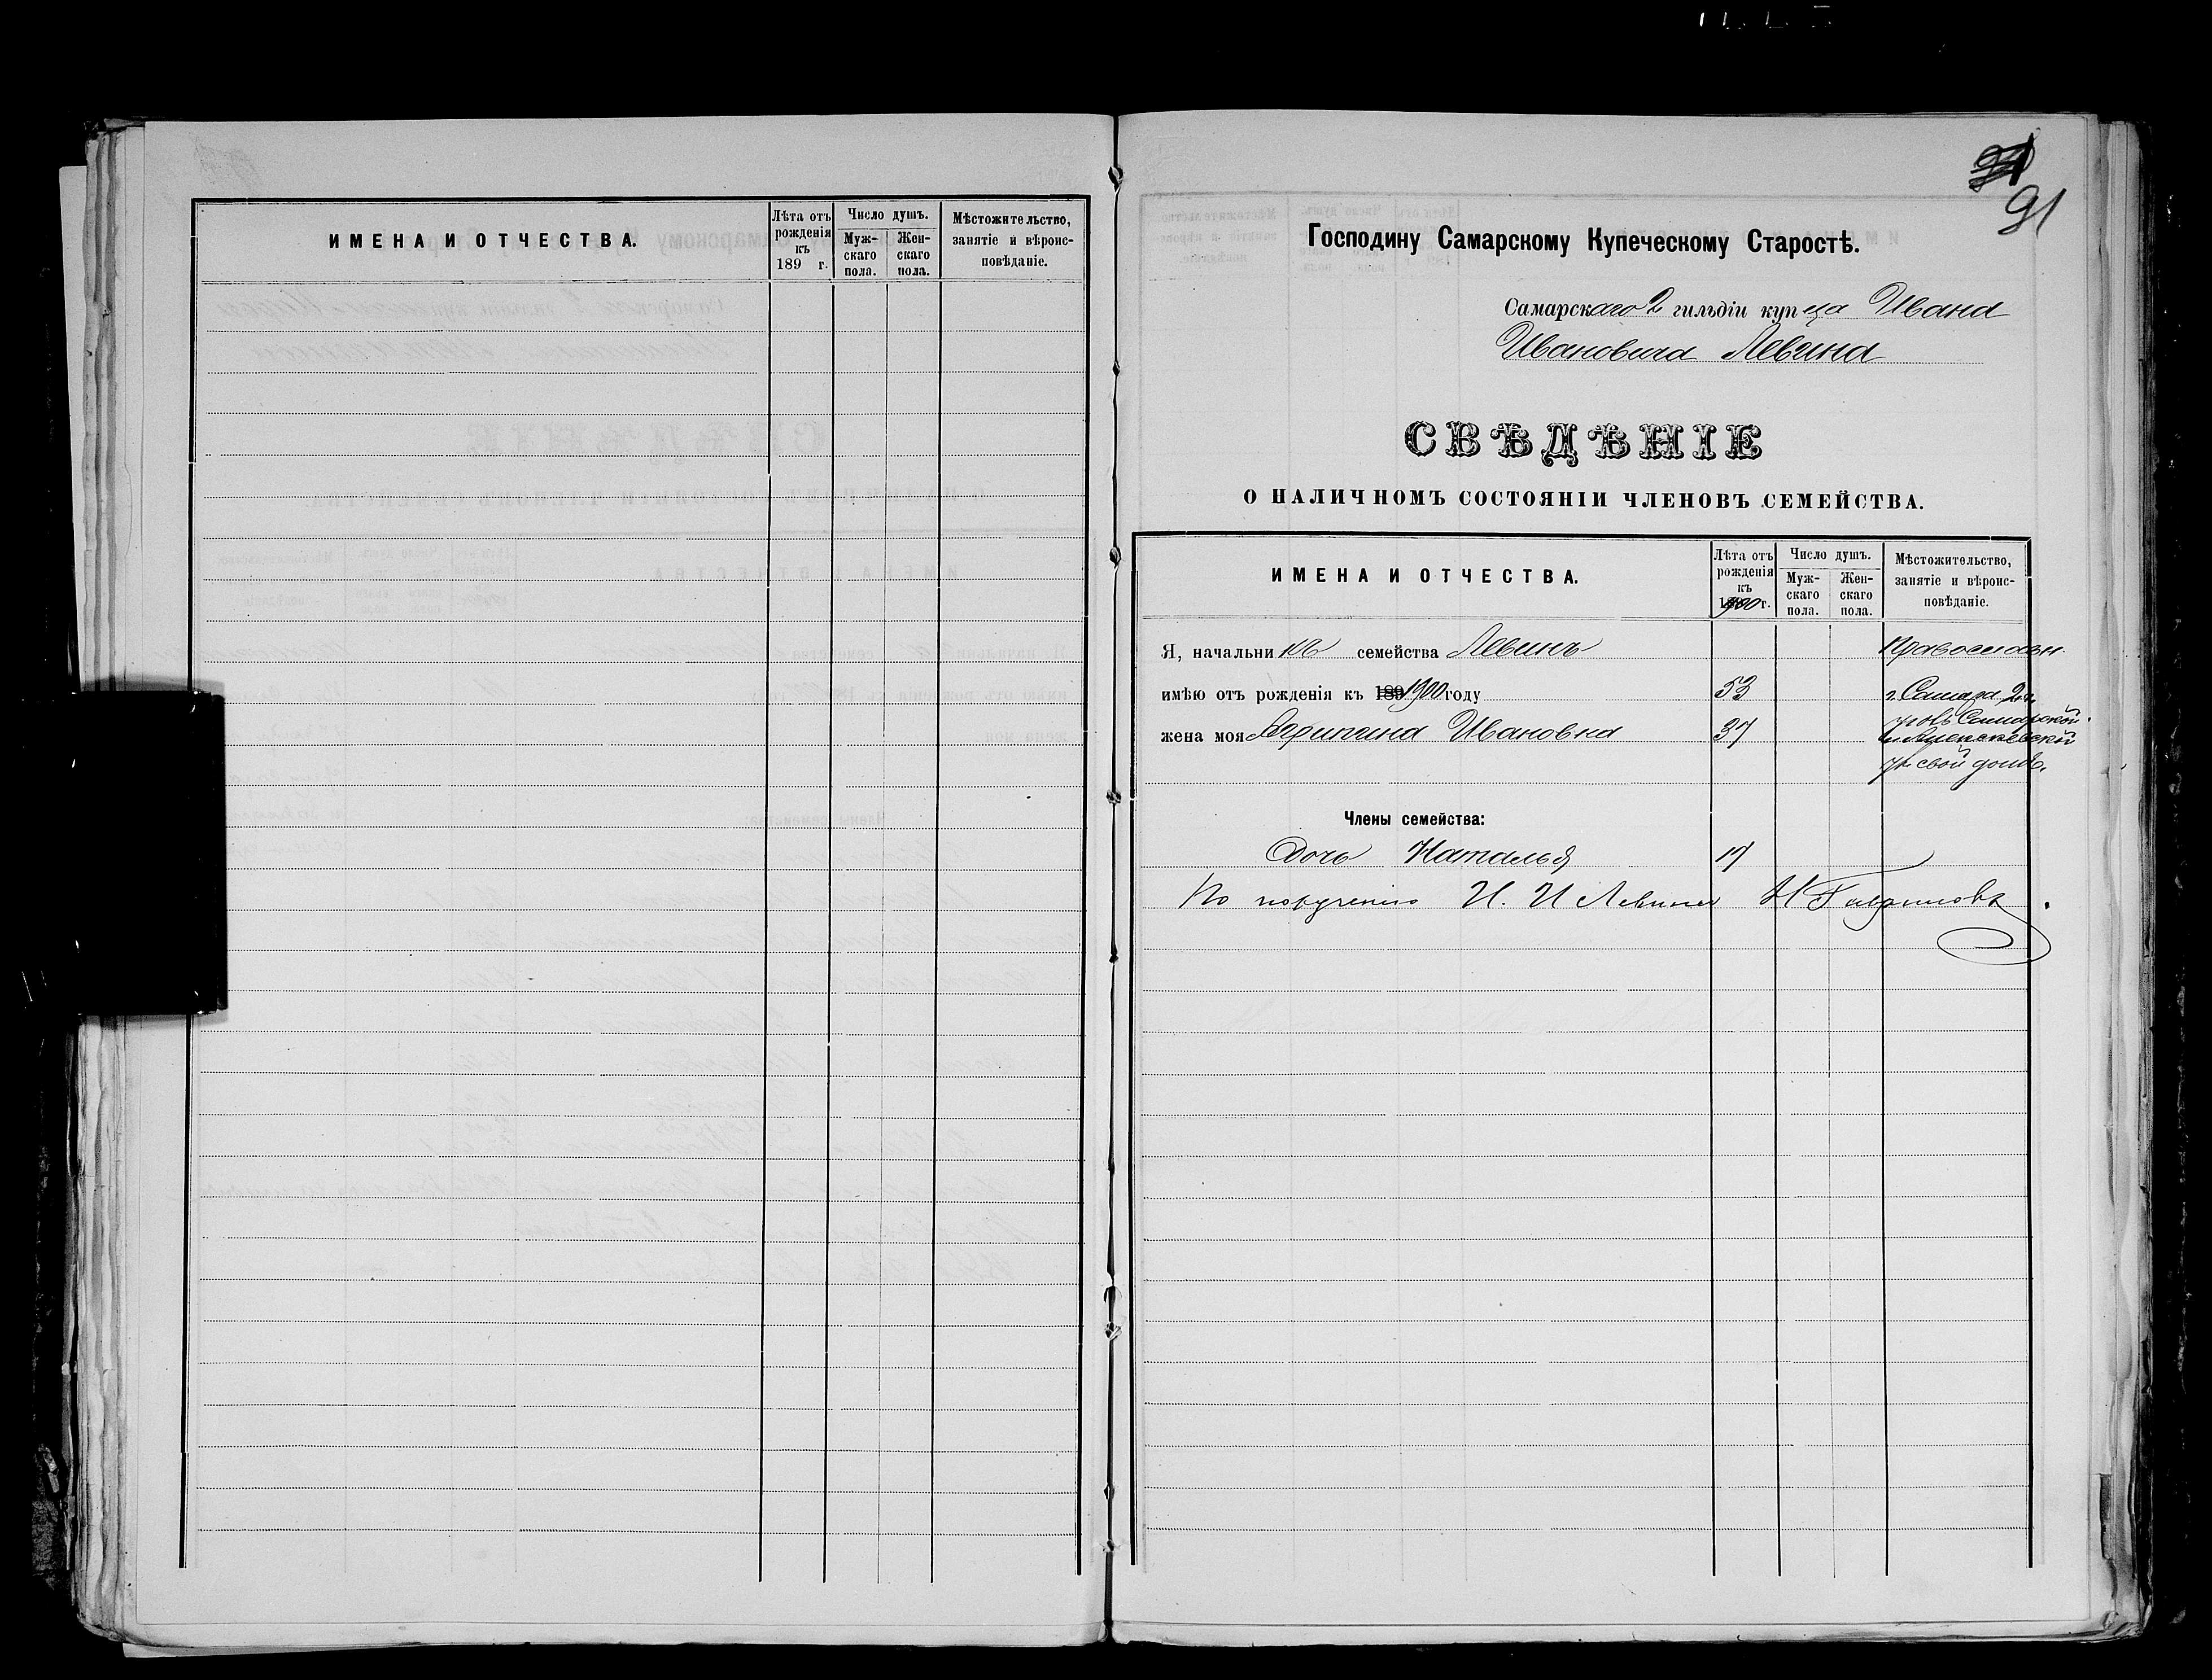 ИМЕНА И ОТЧЕСТВА.
Лѣта отъ рожденія къ 189 г.
Число душъ.
Муж-скаго пола.
Жен-скаго пола.
Мѣстожительство, занятіе и вѣроис-повѣданіе.
91
Господину Самарскому Купеческому Старостѣ.
Самарскаго 2 гильдіи купца Ивана
Ивановича Левина
СВѢДѢНІЕ
О НАЛИЧНОМЪ СОСТОЯНІИ ЧЛЕНОВЪ СЕМЕЙСТВА.
ИМЕНА И ОТЧЕСТВА.
Лѣта отъ рожденія къ 1900 г.
Число душъ.
Муж-скаго пола.
Жен-скаго пола.
Мѣстожительство, занятіе и вѣроис-повѣданіе.
Я, начальникъ семейства Левинъ Православн.
имѣю отъ рожденія къ 189 1900 году 53 г. Самара 2 ч.
жена моя Агрипина Ивановна 37 уголъ Самарской
и Алексѣевской
ул. свой домъ.
Члены семейства:
Дочь Наталья 17
По порученію И. И Левина Н Гавриловъ